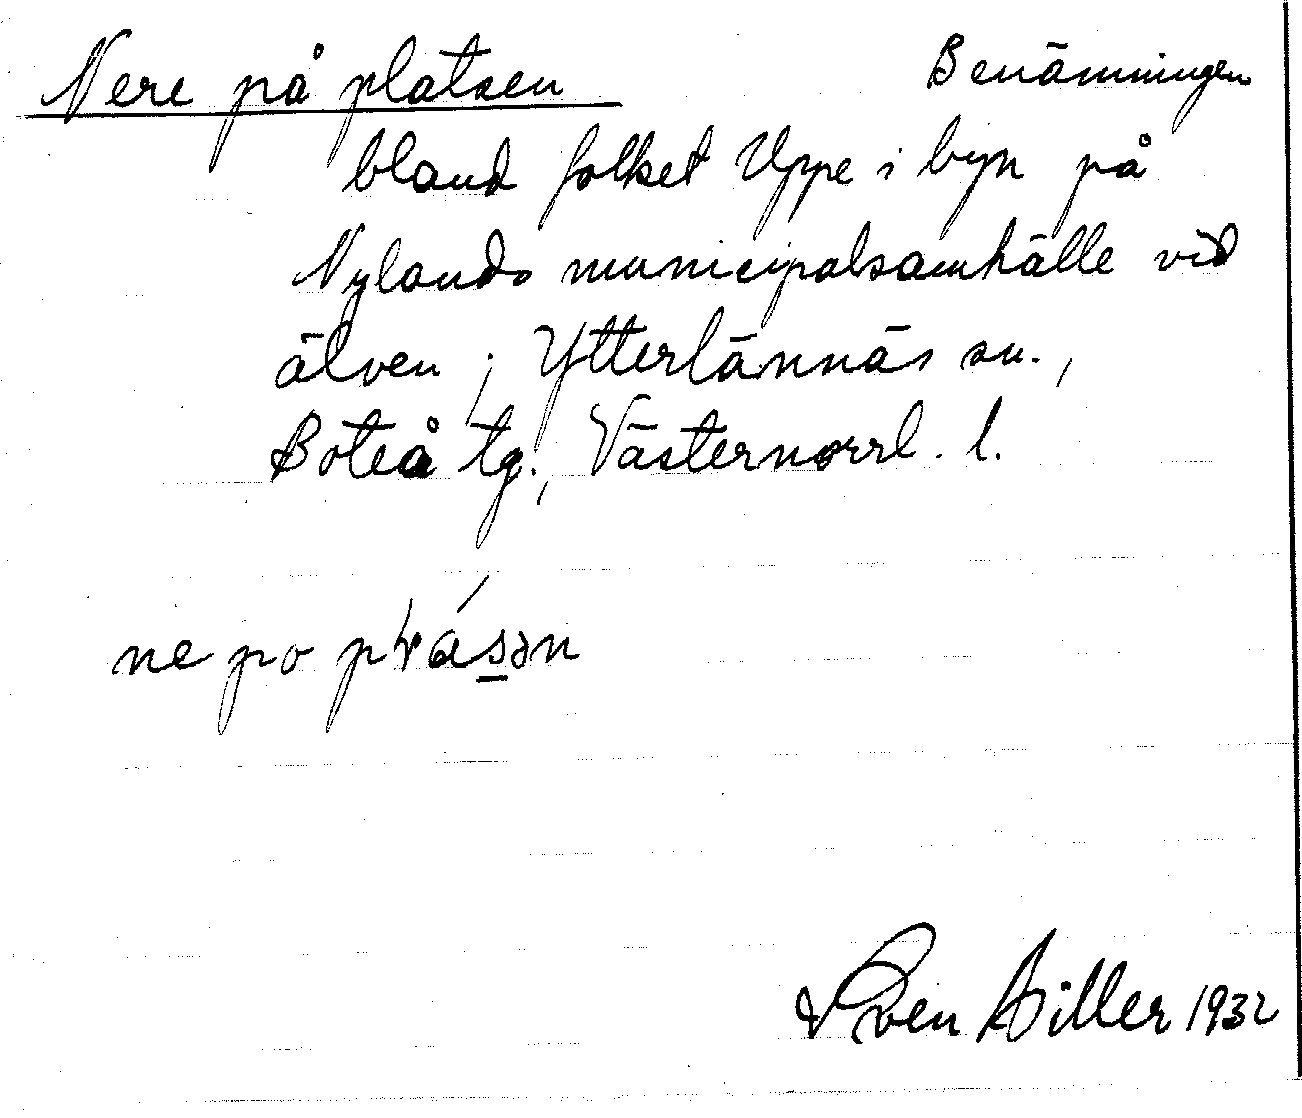 Nere på platsen Benämningen
bland folket Uppe i byn på
Nylands municipalsamhälle vid
älven ; Ytterlännäs sn.,
Boteå tg., Västernorrl. l.
ne po
Sven Hiller 1932